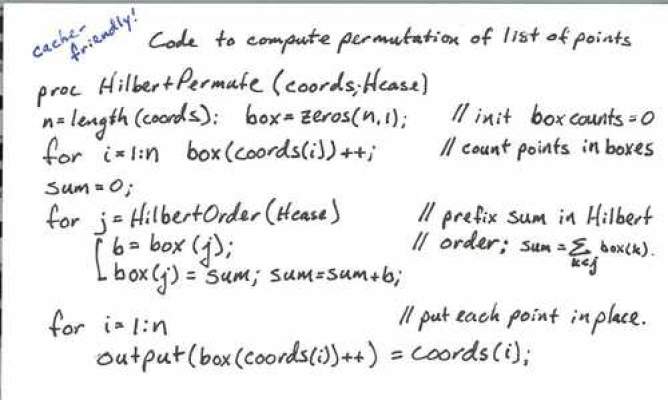 cache-friendly!
Code to compute permutation of list of points
proc HilbertPermute (coords, Hcase)
n=length(coords): box=zeros(n,1); // init boxcounts=0
for i=1:n box(coords(i))++; // count points in boxes
sum=0;
for j=HilbertOrder(Hcase) // prefix sum in Hilbert
b=box(j); // order; sum=∑ box(k).
k<j
box(j)=sum; sum=sum+b;
for i=1:n // put each point in place.
output(box(coords(i))++) = coords(i);